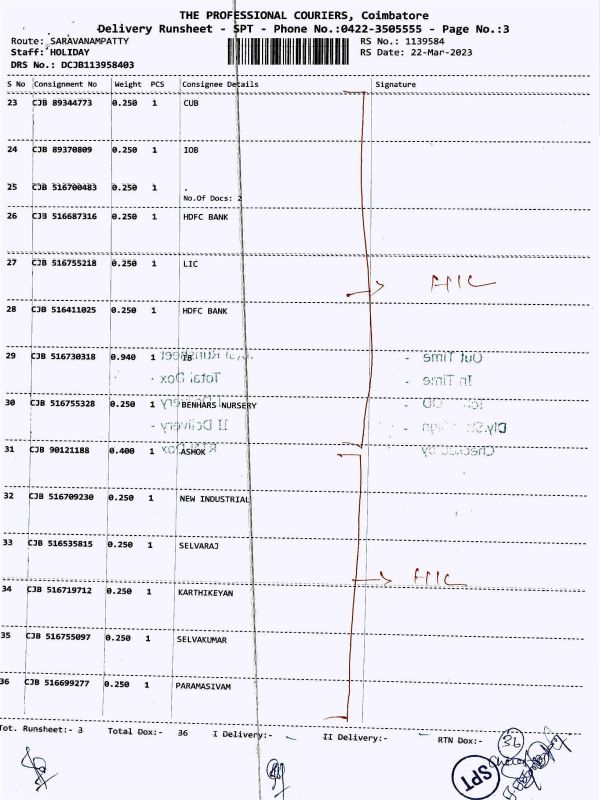 THE PROFESSIONAL COURIERS, Coimbatore
Delivery Runsheet - SPT - Phone No.:0422-3505555 - Page No.:3
Route: SARAVANAMPATTY RS No.: 1139584
Staff: HOLIDAY RS Date: 22-Mar-2023
DRS No.: DCJB113958403
S No Consignment No Weight PCS Consignee Details Signature
23 CJB 89344773 0.250 1 CUB
24 CJB 89370809 0.250 1 IOB
25 CJB 516700483 0.250 1 .
No.Of Docs: 2
26 CJB 516687316 0.250 1 HDFC BANK
27 CJB 516755218 0.250 1 LIC
H1L
28 CJB 516411025 0.250 1 HDFC BANK
29 CJB 516730318 0.940 1 IB
Out Time -
Total Dox - In Time -
30 CJB 516755328 0.250 1 BENHARS NURSERY
II Delivery -
31 CJB 90121188 0.400 1 ASHOK
Checked by
32 CJB 516709230 0.250 1 NEW INDUSTRIAL
33 CJB 516535815 0.250 1 SELVARAJ
H1L
34 CJB 516719712 0.250 1 KARTHIKEYAN
35 CJB 516755097 0.250 1 SELVAKUMAR
36 CJB 516699277 0.250 1 PARAMASIVAM
Tot. Runsheet:- 3 Total Dox:- 36 I Delivery:- II Delivery:- RTN Dox:-
36
SPT